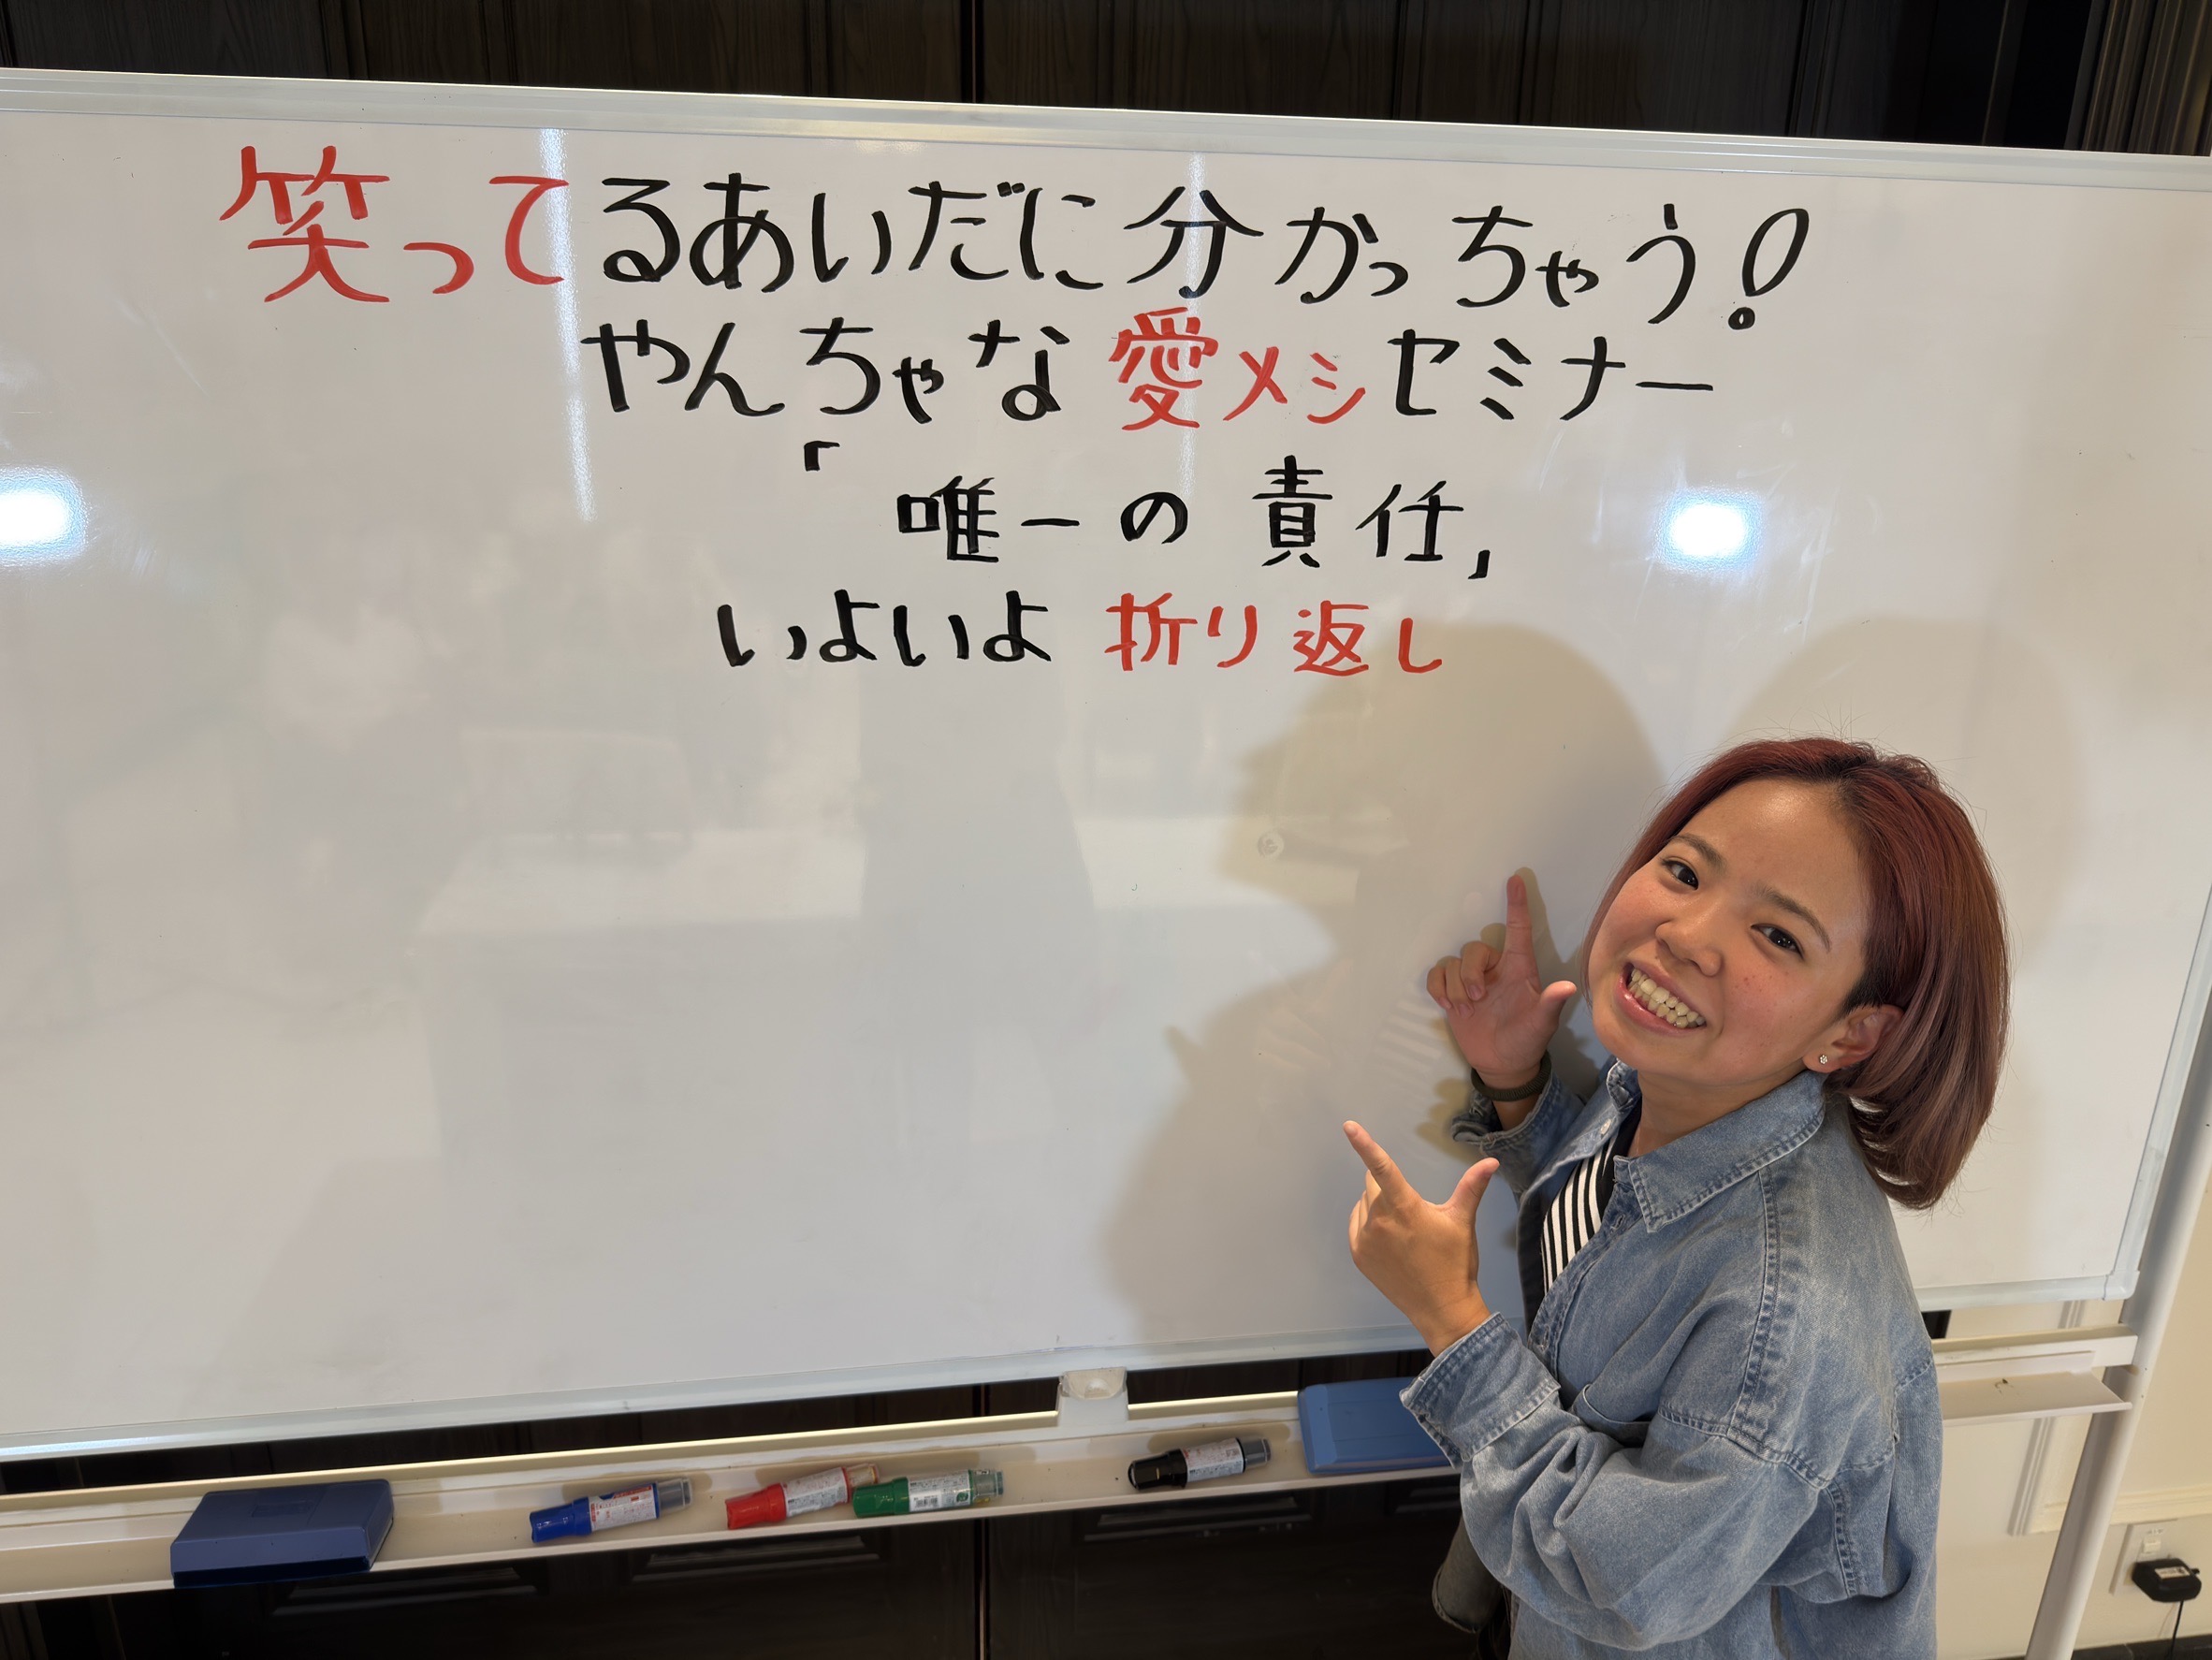 笑ってるあいだに分かっちゃう!
やんちゃな愛メシセミナー
「唯一の責任」
いよいよ折り返し